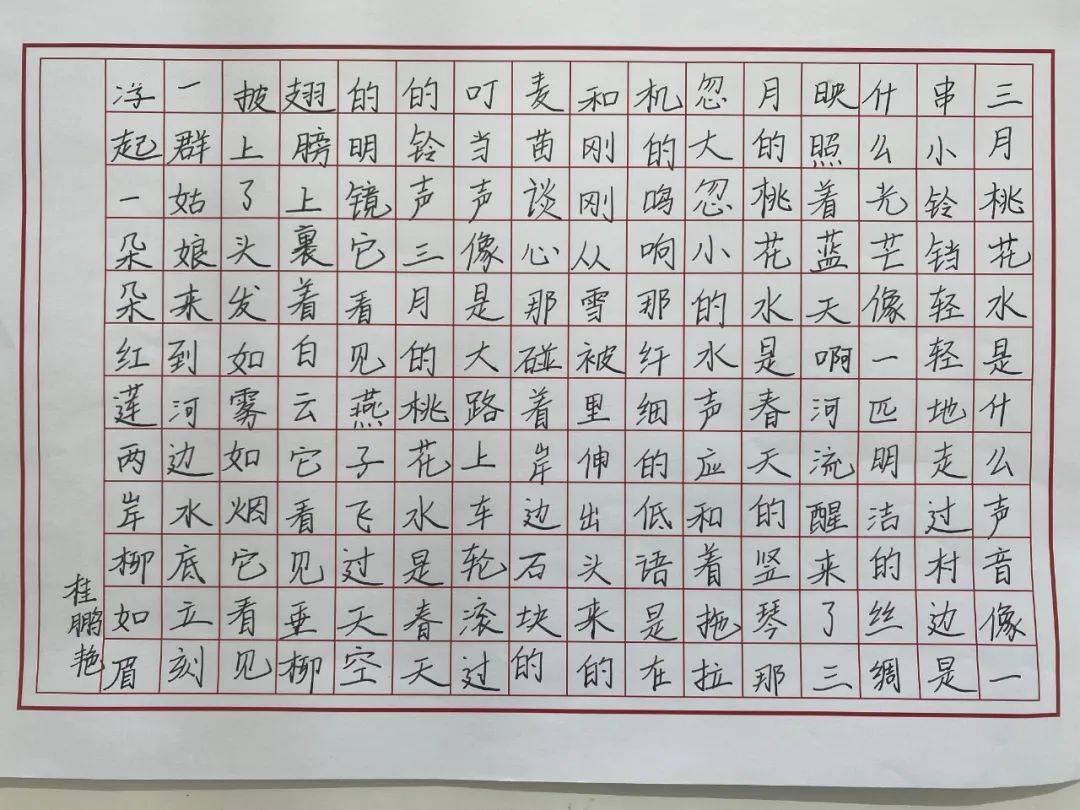 三月桃花水是什么声音像一
串小铃铛轻轻地走过村边是
什么光芒像一匹明洁的丝绸
映照着蓝天啊河流醒来了三
月的桃花水是春天的竖琴那
忽大忽小的水声应和着拖拉
机的鸣响那纤细的低语是在
和刚刚从雪被里伸出头来的
麦苗谈心那碰着岸边石块的
叮当声像是大路上车轮滚过
的铃声三月的桃花水是春天
的明镜它看见燕子飞过天空
翅膀上裹着白云它看见垂柳
披上了头发如雾如烟它看见
一群姑娘来到河边水底立刻
浮起一朵朵红莲两岸柳如眉
桂鹏艳